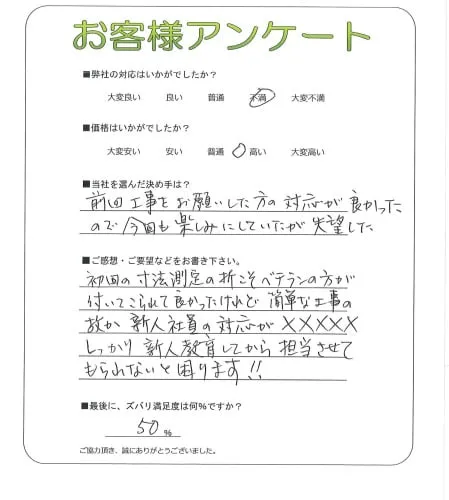 お客様アンケート
■弊社の対応はいかがでしたか？
大変良い 良い 普通 不満 大変不満
■価格はいかがでしたか？
大変安い 安い 普通 高い 大変高い
■当社を選んだ決め手は？
前回工事をお願いした方の対応が良かった
ので今回も楽しみにしていたが失望した
■ご感想・ご要望などをお書き下さい。
初回の寸法測定の折こそベテランの方が
付いてこられて良かったけれど簡単な工事の
故か新人社員の対応が×××××
しっかり新人教育してから担当させて
もられないと困ります!!
■最後に、ズバリ満足度は何%ですか？
50%
ご協力頂き、誠にありがとうございました。